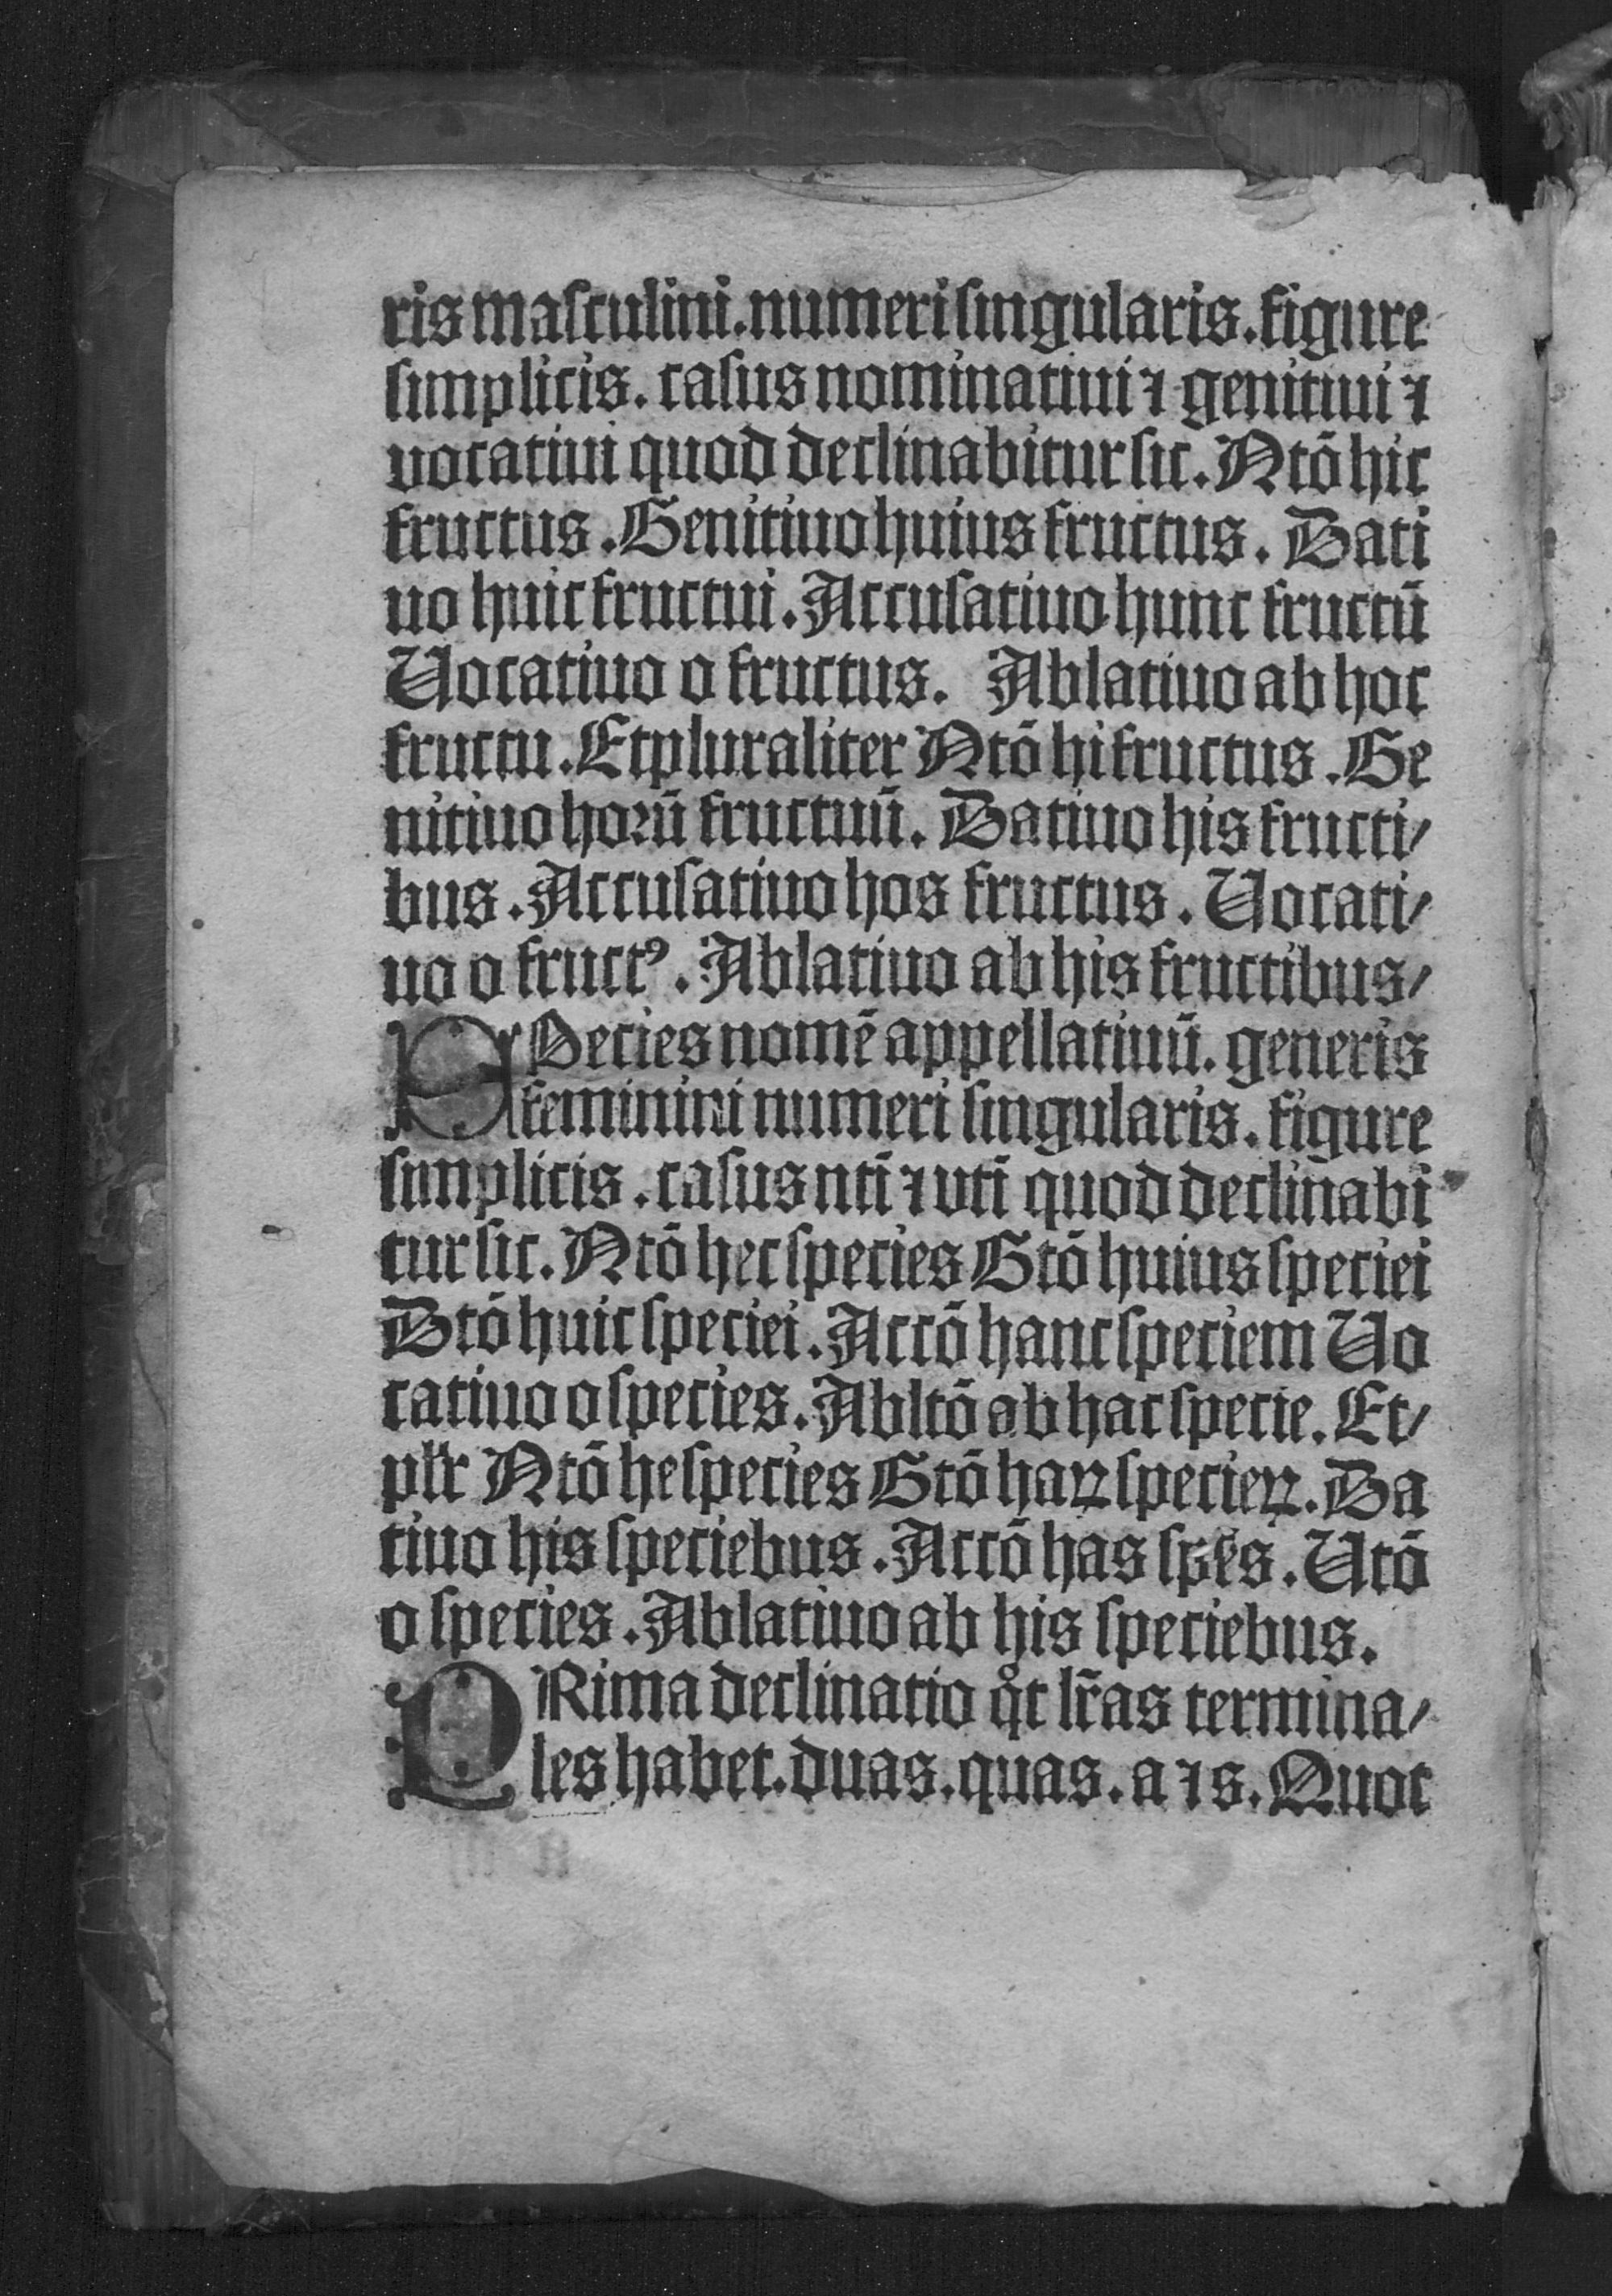 ris masculini.numeri singularis.figure
simplicis. casus nominatiui ⁊ genitiui ⁊
vocatiui quod declinabitur sic. Ntō hic
fructus. Genitiuo huius fructus. Dati
uo huic fructui. Accusatiuo hunc fructū
Uocatiuo o fructus. Ablatiuo ab hoc
fructu. Et pluraliter Ntō hi fructus. Ge
nitiuo horū fructuū. Datiuo his fructi/
bus. Accusatiuo hos fructus. Uocati/
uo o fructꝰ. Ablatiuo ab his fructibus/
Species nomē appellatiuū. generis
feminini numeri singularis. figure
simplicis. casus ntī ⁊ vtī quod declinabi
tur sic. Ntō hec species Gtō huius speciei
Dtō huic speciei. Accō hanc speciem Uo
catiuo o species. Abltō ab hac specie. Et/
plr̄ Ntō he species Gtō haꝝ specieꝝ. Da
tiuo his speciebus. Accō has sp̄es. Utō
o species. Ablatiuo ab his speciebus.
PRima declinatio qͦt lr̄as termina/
les habet. duas. quas. a ⁊ s. Quot